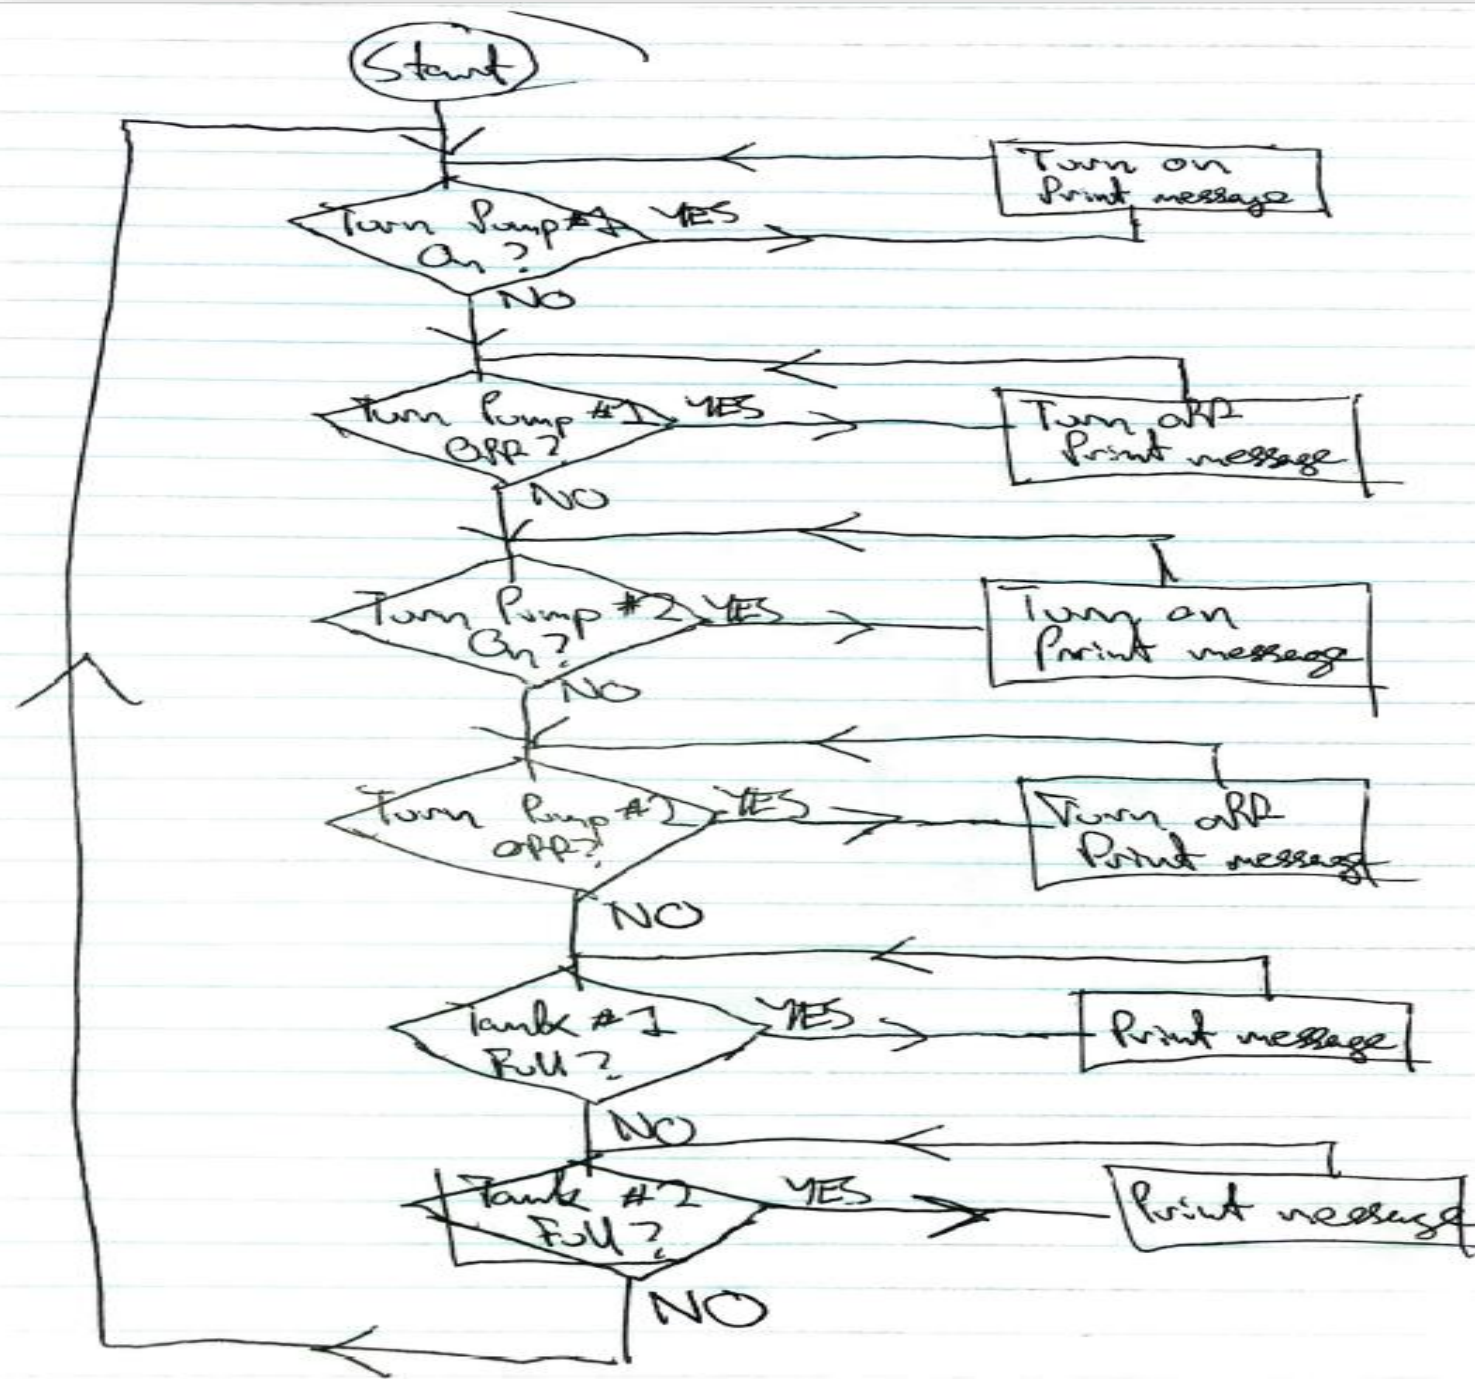 Start
Turn on
Print message
Turn Pump #1
On?
YES
NO
Turn Pump #1
OFF?
YES
Turn off
Print message
NO
Turn Pump #2
On?
YES
Turn on
Print message
NO
Turn Pump #2
OFF?
YES
Turn off
Print message
NO
Tank #1
Full?
YES
Print message
NO
Tank #2
Full?
YES
Print message
NO